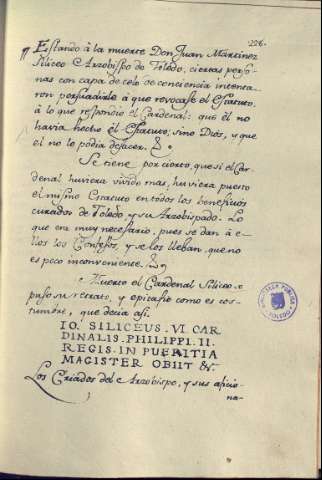 226.
Estando à la muerte Don Juan Martinez
Siliceo Arzobispo de Toledo, ciertas perso-
nas con capa de celo de conciencia intenta-
ron persuadirle a que revocase el Estatuto,
à lo que respondio el Cardenal: que èl no
havia hecho el Estatuto, sino Dios, y que
èl no lo podia deshacer.
Se tiene por cierto, que si el Car-
denal huviera vivido mas, huviera puesto
el mismo Estatuto en todos los beneficios
curados de Toledo y su Arzobispado. Lo
que era muy necesario, pues se dan à e-
llos los Confesos, y se los lleban, que no
es poco inconveniente.
Muerto el Cardenal Siliceo se
puso su retrato, y epitafio como es cos-
tumbre, que decia asi.
IO. SILICEUS. VI. CAR
DINALIS. PHILIPPI. II.
REGIS. IN PUERITIA
MAGISTER OBIIT &c.
Los Criados del Arzobispo, y sus aficio-
na-
BIBLIOTECA PUBLICA
TOLEDO